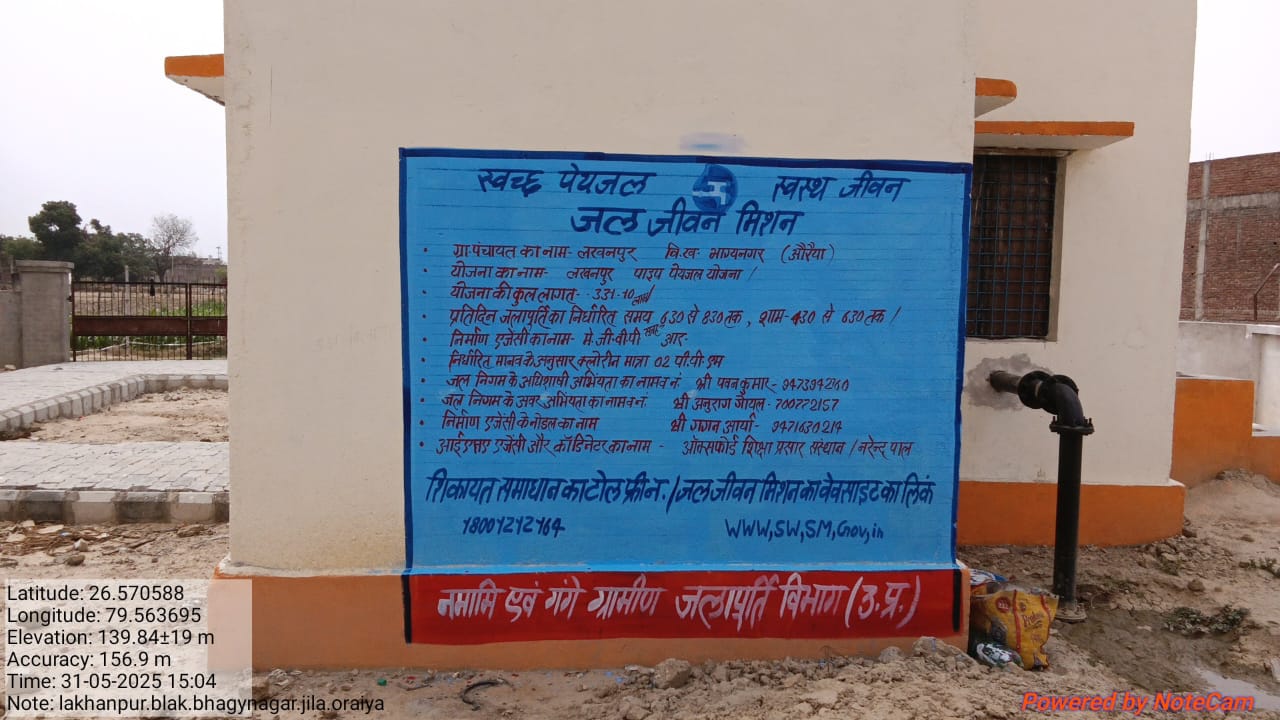 स्वच्छ पेयजल स्वस्थ जीवन
जल जीवन मिशन
• ग्रा.पंचायत का नाम- लखनपुर वि.ख- भाग्यनगर (औरैया)
• योजना का नाम- लखनपुर पाइप पेयजल योजना /
• योजना की कुल लागत- 331.10 लाख
• प्रतिदिन जलापूर्ति का निर्धारित समय 6:30 से 8:30 तक, शाम- 4:30 से 6:30 तक /
• निर्माण एजेंसी का नाम- मे. जी.वी.पी आर-
• निर्धारित मानक के अनुसार क्लोरीन मात्रा 02 पी.पी एम
• जल निगम के अधिशाषी अभियंता का नाम व नं. श्री पवन कुमार- 9473942160
• जल निगम के अवर अभियंता का नाम व नं. श्री अनुराग गोयल- 700772157
• निर्माण एजेंसी के नोडल का नाम श्री गगन आर्या- 9471630214
• आई एस ए एजेंसी और कॉर्डिनेटर का नाम - ऑक्सफोर्ड शिक्षा प्रसार संस्थान / नरेन्द्र पाल
शिकायत समाधान का टोल फ्री न. / जल जीवन मिशन का वेबसाइट का लिंक
18001212164 WWW,SW,SM,Gov,in
नमामि एवं गंगे ग्रामीण जलापूर्ति विभाग (उ.प्र.)
Latitude: 26.570588
Longitude: 79.563695
Elevation: 139.84±19 m
Accuracy: 156.9 m
Time: 31-05-2025 15:04
Note: lakhanpur.blak.bhagynagar.jila.oraiya
Powered by NoteCam